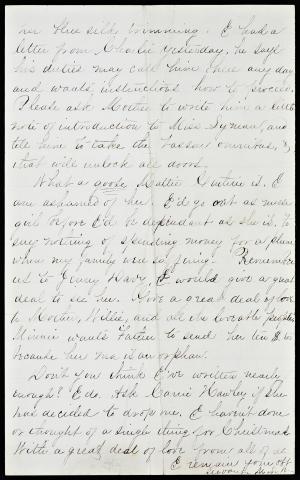 her blue silk, trimming. I had a
letter from Charlie yesterday, he says
his duties may call him there any day
and wants instructions how to proceed.
Please ask Mother to write him a little
note of introduction to Miss Lyman, and
tell him to take the Vassar omnibus, &
that will unlock all doors.
What a goose Mattie is. I
am ashamed of her. I'd go out as
girl before I'd be dependant as she is, to
say nothing of spending money for a
when my family were so Remember
us to Jenny Ha I would give a great
deal to see her. Give a great deal of love
to Mother, Willie, and all the loveable
Minnie wants Father to send her ten $
because her ma is an orphan.
Don't you think I've written nearly
enough? I do. Ask Carrie Hawley if she
has decided to drop me. I haven't done
or thought of a single thing for Christmas
With a great deal of love from all of us
I remain your off